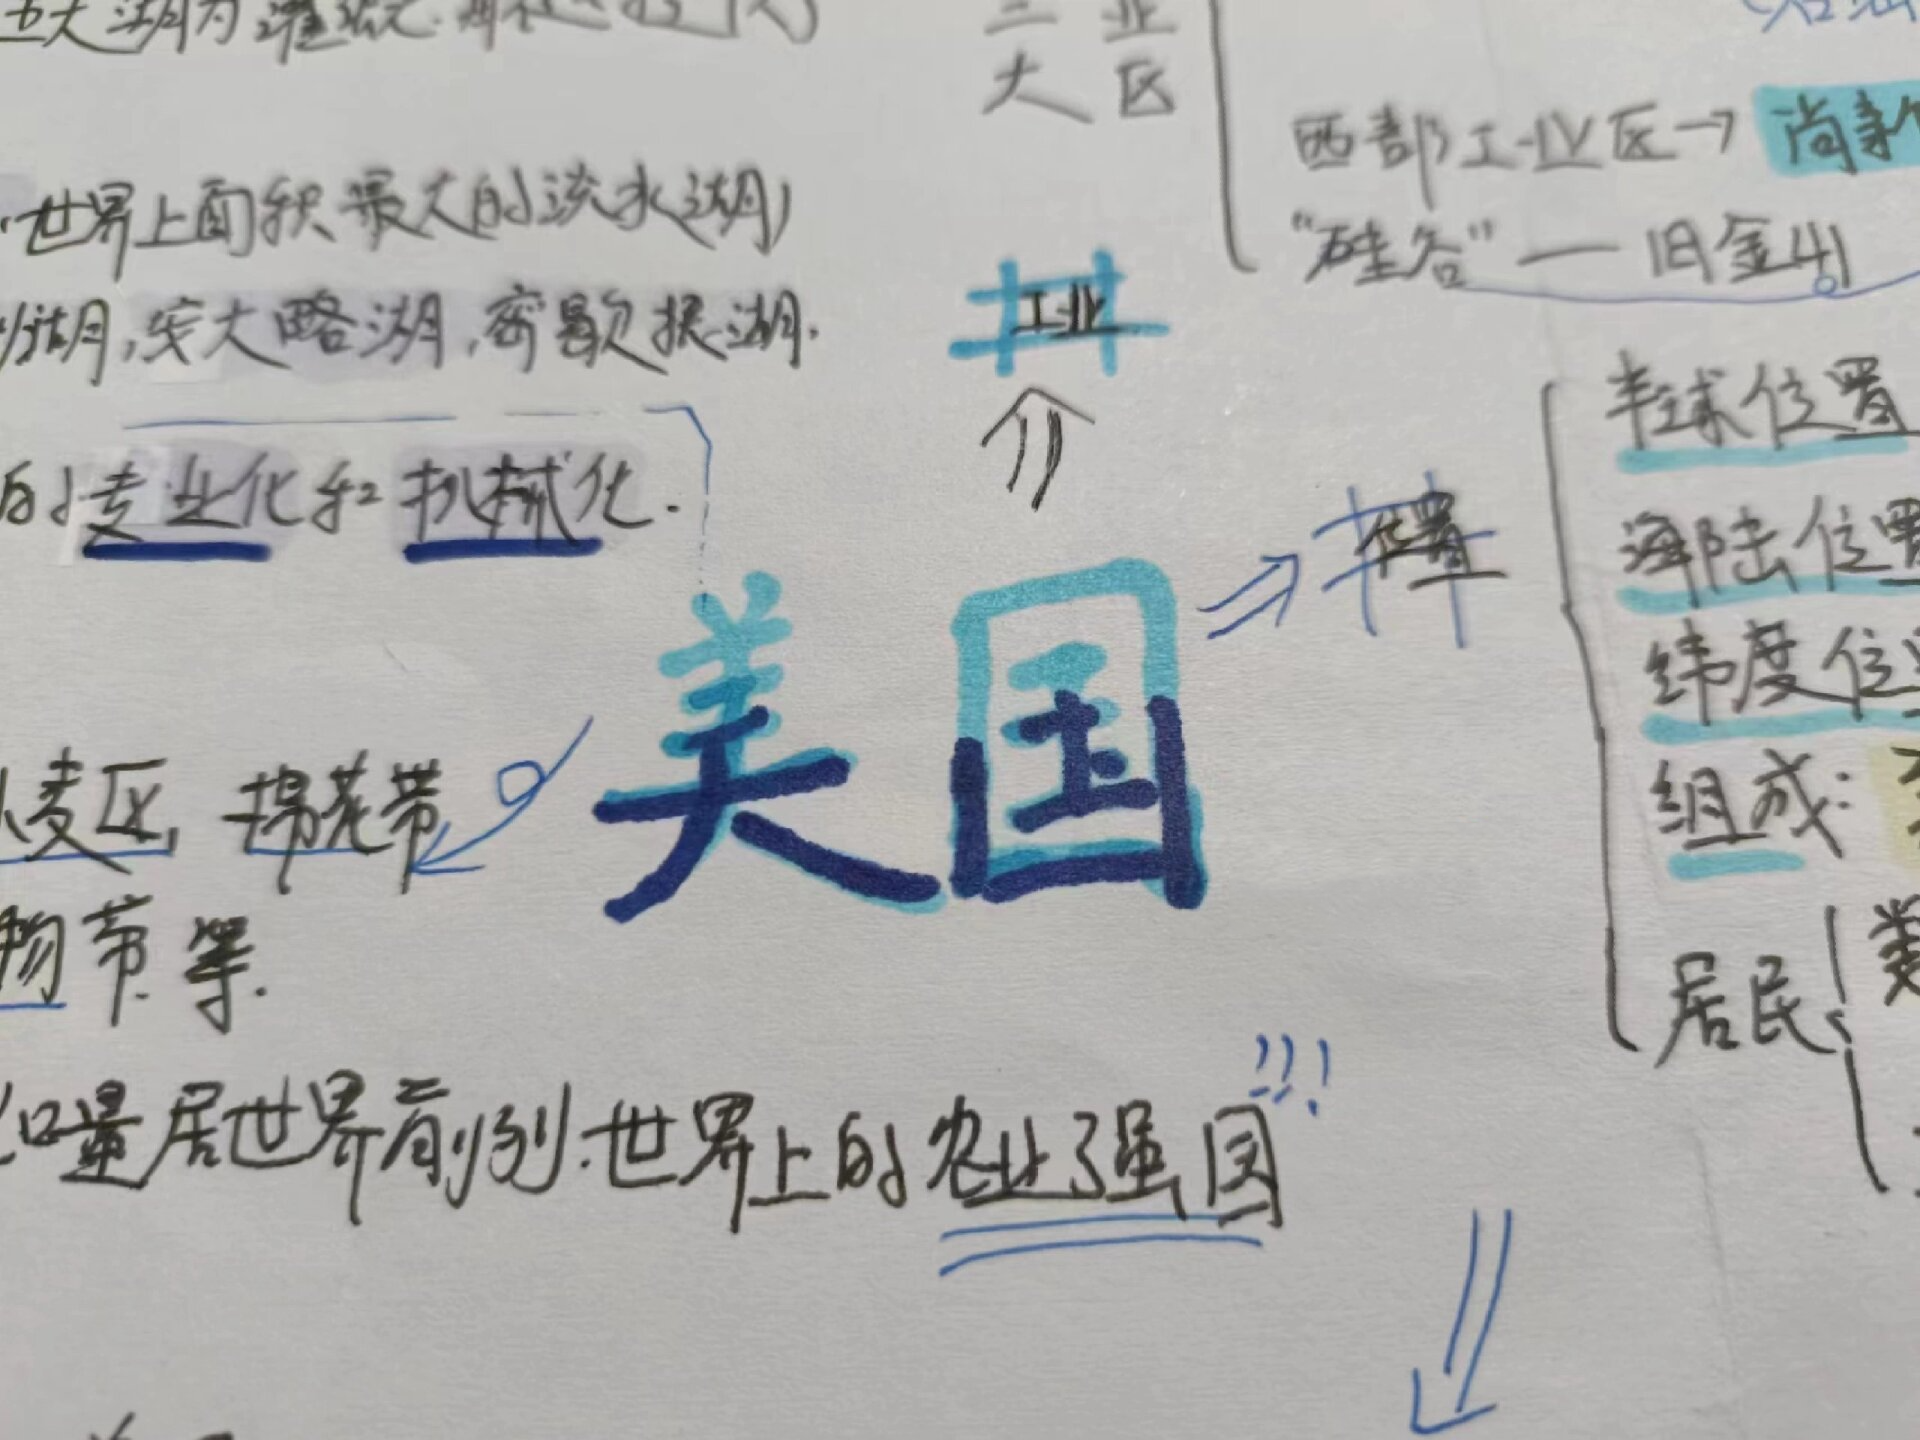 五大湖为灌溉
三 业
大 区
西部工业区→
"硅谷"—旧金山
世界上面积最大的淡水湖)
湖,安大略湖,密歇根湖.
工业
的专业化和机械化.
位置
半球位置
海陆位置
纬度位置
组成:
居民
美国
小麦区, 棉花带
物带.等.
口量居世界前列.世界上的农业强国!!!